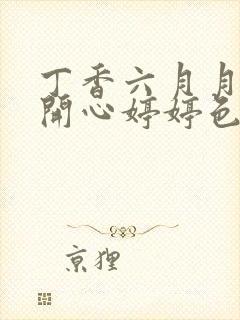 丁香六月月
開心婷婷色
京狸